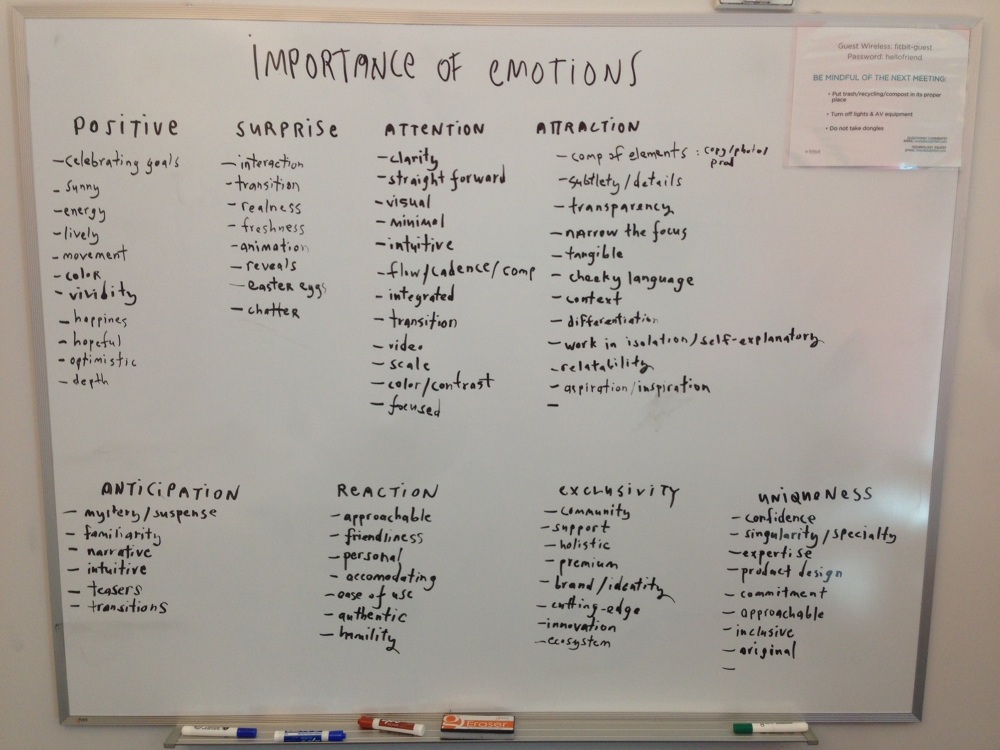 IMPORTANCE OF EMOTIONS
Guest Wireless: fitbit-guest
Password: hellofriend
BE MINDFUL OF THE NEXT MEETING:
• Put trash/recycling/compost in its proper
place
• Turn off lights & AV equipment
• Do not take dongles
POSITIVE
- celebrating goals
- sunny
- energy
- lively
- movement
- color
- vividity
- happines
- hopeful
- optimistic
- depth
SURPRISE
- interaction
- transition
- realness
- freshness
- animation
- reveals
- easter eggs
- chatter
ATTENTION
- clarity
- straight forward
- visual
- minimal
- intuitive
- flow/cadence/comp
- integrated
- transition
- video
- scale
- color/contrast
- focused
ATTRACTION
- comp of elements : copy/photos/
prod
- subtlety/details
- transparency
- narrow the focus
- tangible
- cheeky language
- context
- differentiation
- work in isolation/self-explanatory
- relatability
- aspiration/inspiration
-
ANTICIPATION
- mystery/suspense
- familiarity
- narrative
- intuitive
- teasers
- transitions
REACTION
- approachable
- friendliness
- personal
- accomodating
- ease of use
- authentic
- humility
EXCLUSIVITY
- community
- support
- holistic
- premium
- brand/identity
- cutting-edge
- innovation
- ecosystem
UNIQUENESS
- confidence
- singularity/specialty
- expertise
- product design
- commitment
- approachable
- inclusive
- original
-
Eraser